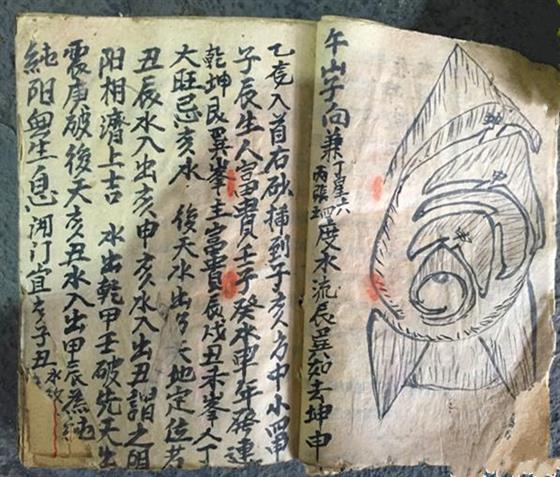 午山子向兼丁星六丙張度水流辰巽如去坤申
乙亮入首右砂插到子亥方中小四申
子辰生人富貴壬子癸水單年發連
乾坤艮巽峯主富貴辰戌丑未峯人丁
大旺忌亥水 後天水出乃天地定位若
丑辰水入出亥甲亥水入出丑謂之阴
阳相濟上吉 水出乾甲壬破先天出
震庚破後天亥丑水入出甲辰為純
純阳無生息 開门宜亥子丑